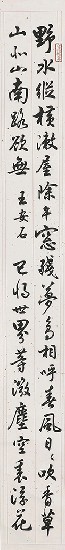 野水縱橫漱屋除午窗殘夢鳥相呼春風日日吹香草
山北山南路欲無 王安石 已將世界等微塵空裏浮花